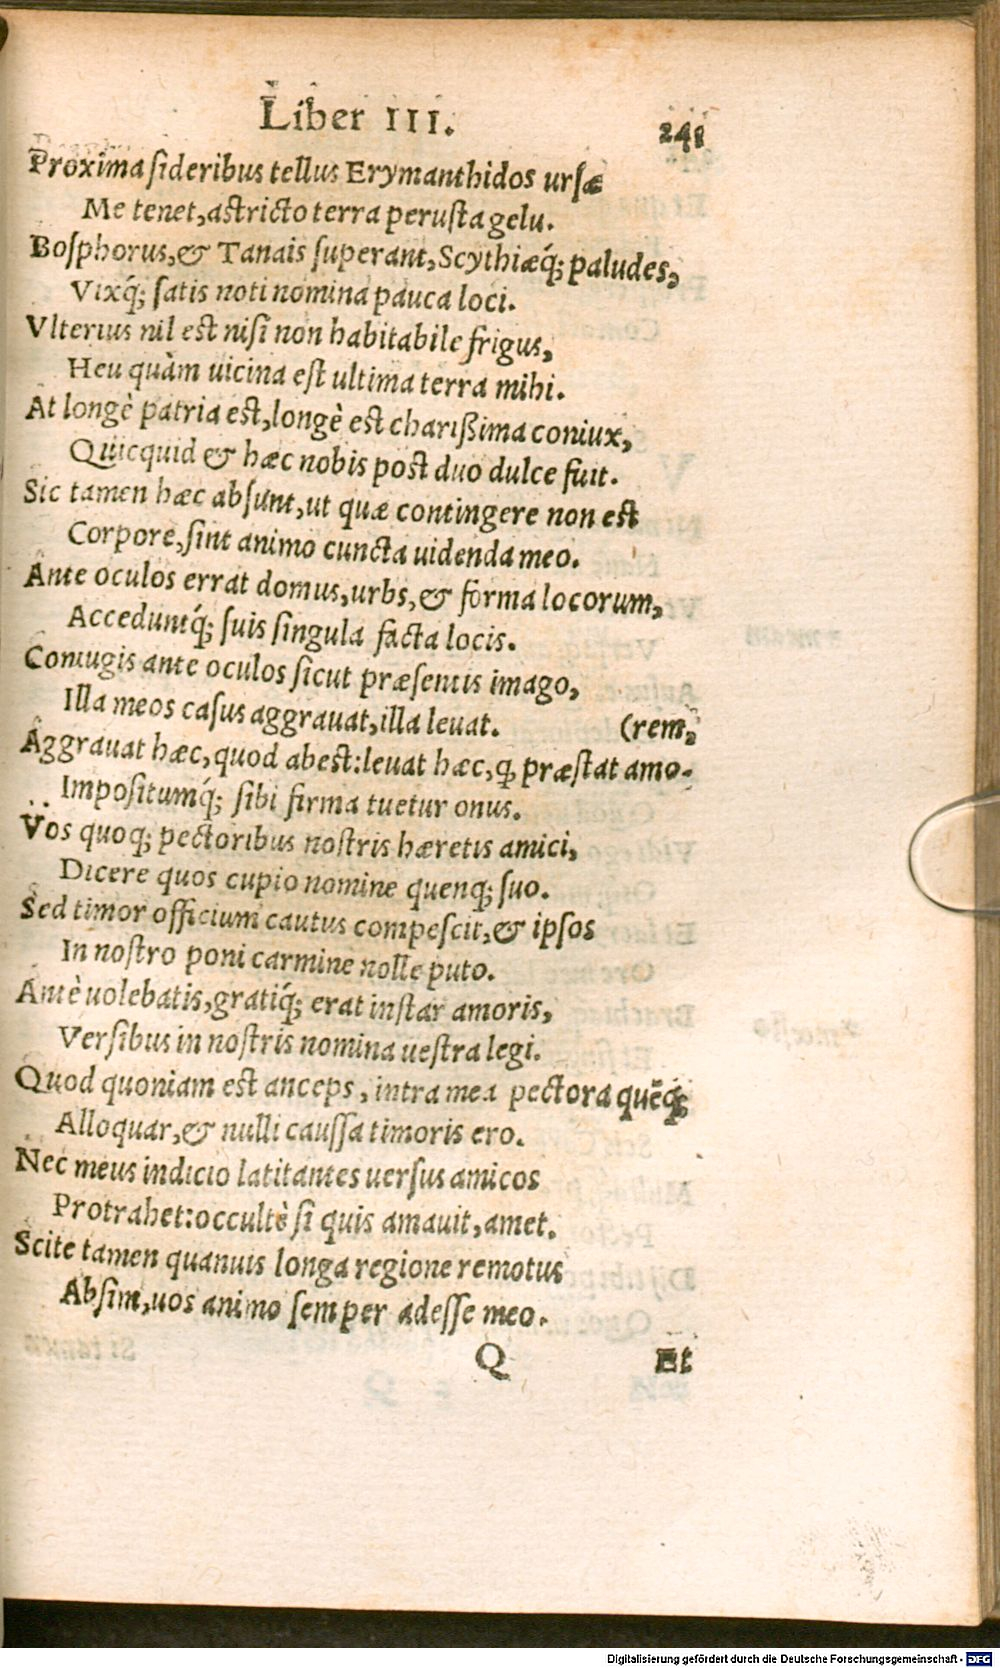 Liber III. 241
Proxima ſideribus tellus Erymanthidos urſæ
Me tenet, aſtricto terra peruſta gelu.
Boſphorus, & Tanais ſuperant, Scythiæq́; paludes,
Vixq́; ſatis noti nomina pauca loci.
Vlterius nil eſt niſi non habitabile frigus,
Heu quàm uicina eſt ultima terra mihi.
At longè patria eſt, longè eſt chariſsima coniux,
Quicquid & hæc nobis poſt duo dulce fuit.
Sic tamen hæc abſunt, ut quæ contingere non eſt
Corpore, ſint animo cuncta uidenda meo.
Ante oculos errat domus, urbs, & forma locorum,
Acceduntq́; ſuis ſingula facta locis.
Coniugis ante oculos ſicut præſentis imago,
Illa meos caſus aggrauat, illa leuat. (rem,
Aggrauat hæc, quod abeſt: leuat hæc, ꝙ præſtat amo-
Impoſitumq́; ſibi firma tuetur onus.
Vos quoq; pectoribus noſtris hæretis amici,
Dicere quos cupio nomine quenq; ſuo.
Sed timor officium cautus compeſcit, & ipſos
In noſtro poni carmine nolle puto.
Antè uolebatis, gratiq́; erat inſtar amoris,
Verſibus in noſtris nomina ueſtra legi.
Quod quoniam eſt anceps, intra mea pectora quēq;
Alloquar, & nulli cauſſa timoris ero.
Nec meus indicio latitantes uerſus amicos
Protrahet: occultè ſi quis amauit, amet.
Scite tamen quanuis longa regione remotus
Abſim, uos animo ſemper adeſſe meo.
Q Et
Digitalisierung gefördert durch die Deutsche Forschungsgemeinschaft - DFG